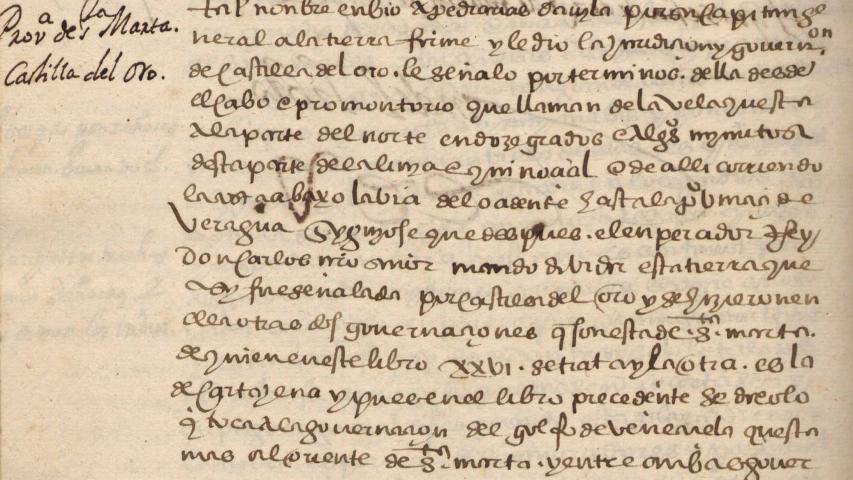 Prov.ª de S.ta Marta.
Castilla del Oro.
tal nonbre enbio a pedrarias davila por su capitan ge
neral a la tierra firme y le dio la juridicion y govern.on
de castilla del oro. le señalo por terminos della desde
el cabo e promontorio que llaman de la vela questa
a la parte del norte en doze grados e algos mynutos
desta parte de la linea equinoçial e de alli corriendo
la costa abaxo la via del ocidente hasta la provinçia de
veragua e sygniose que despues el enperador Rey
don carlos nro señor mando dividir esta tierra que
asy fue señalada por castilla del oro y se hizieron en
ella otras dos governaçiones q son esta de S.ta marta.
de quien en este libro XXVI. se trata y la otra. es la
de cartajena y pues en el libro precedente se dixo lo
q toca a la governaçion del golfo de veneçuela questa
mas al oriente de S.ta marta. y entre ambas gover